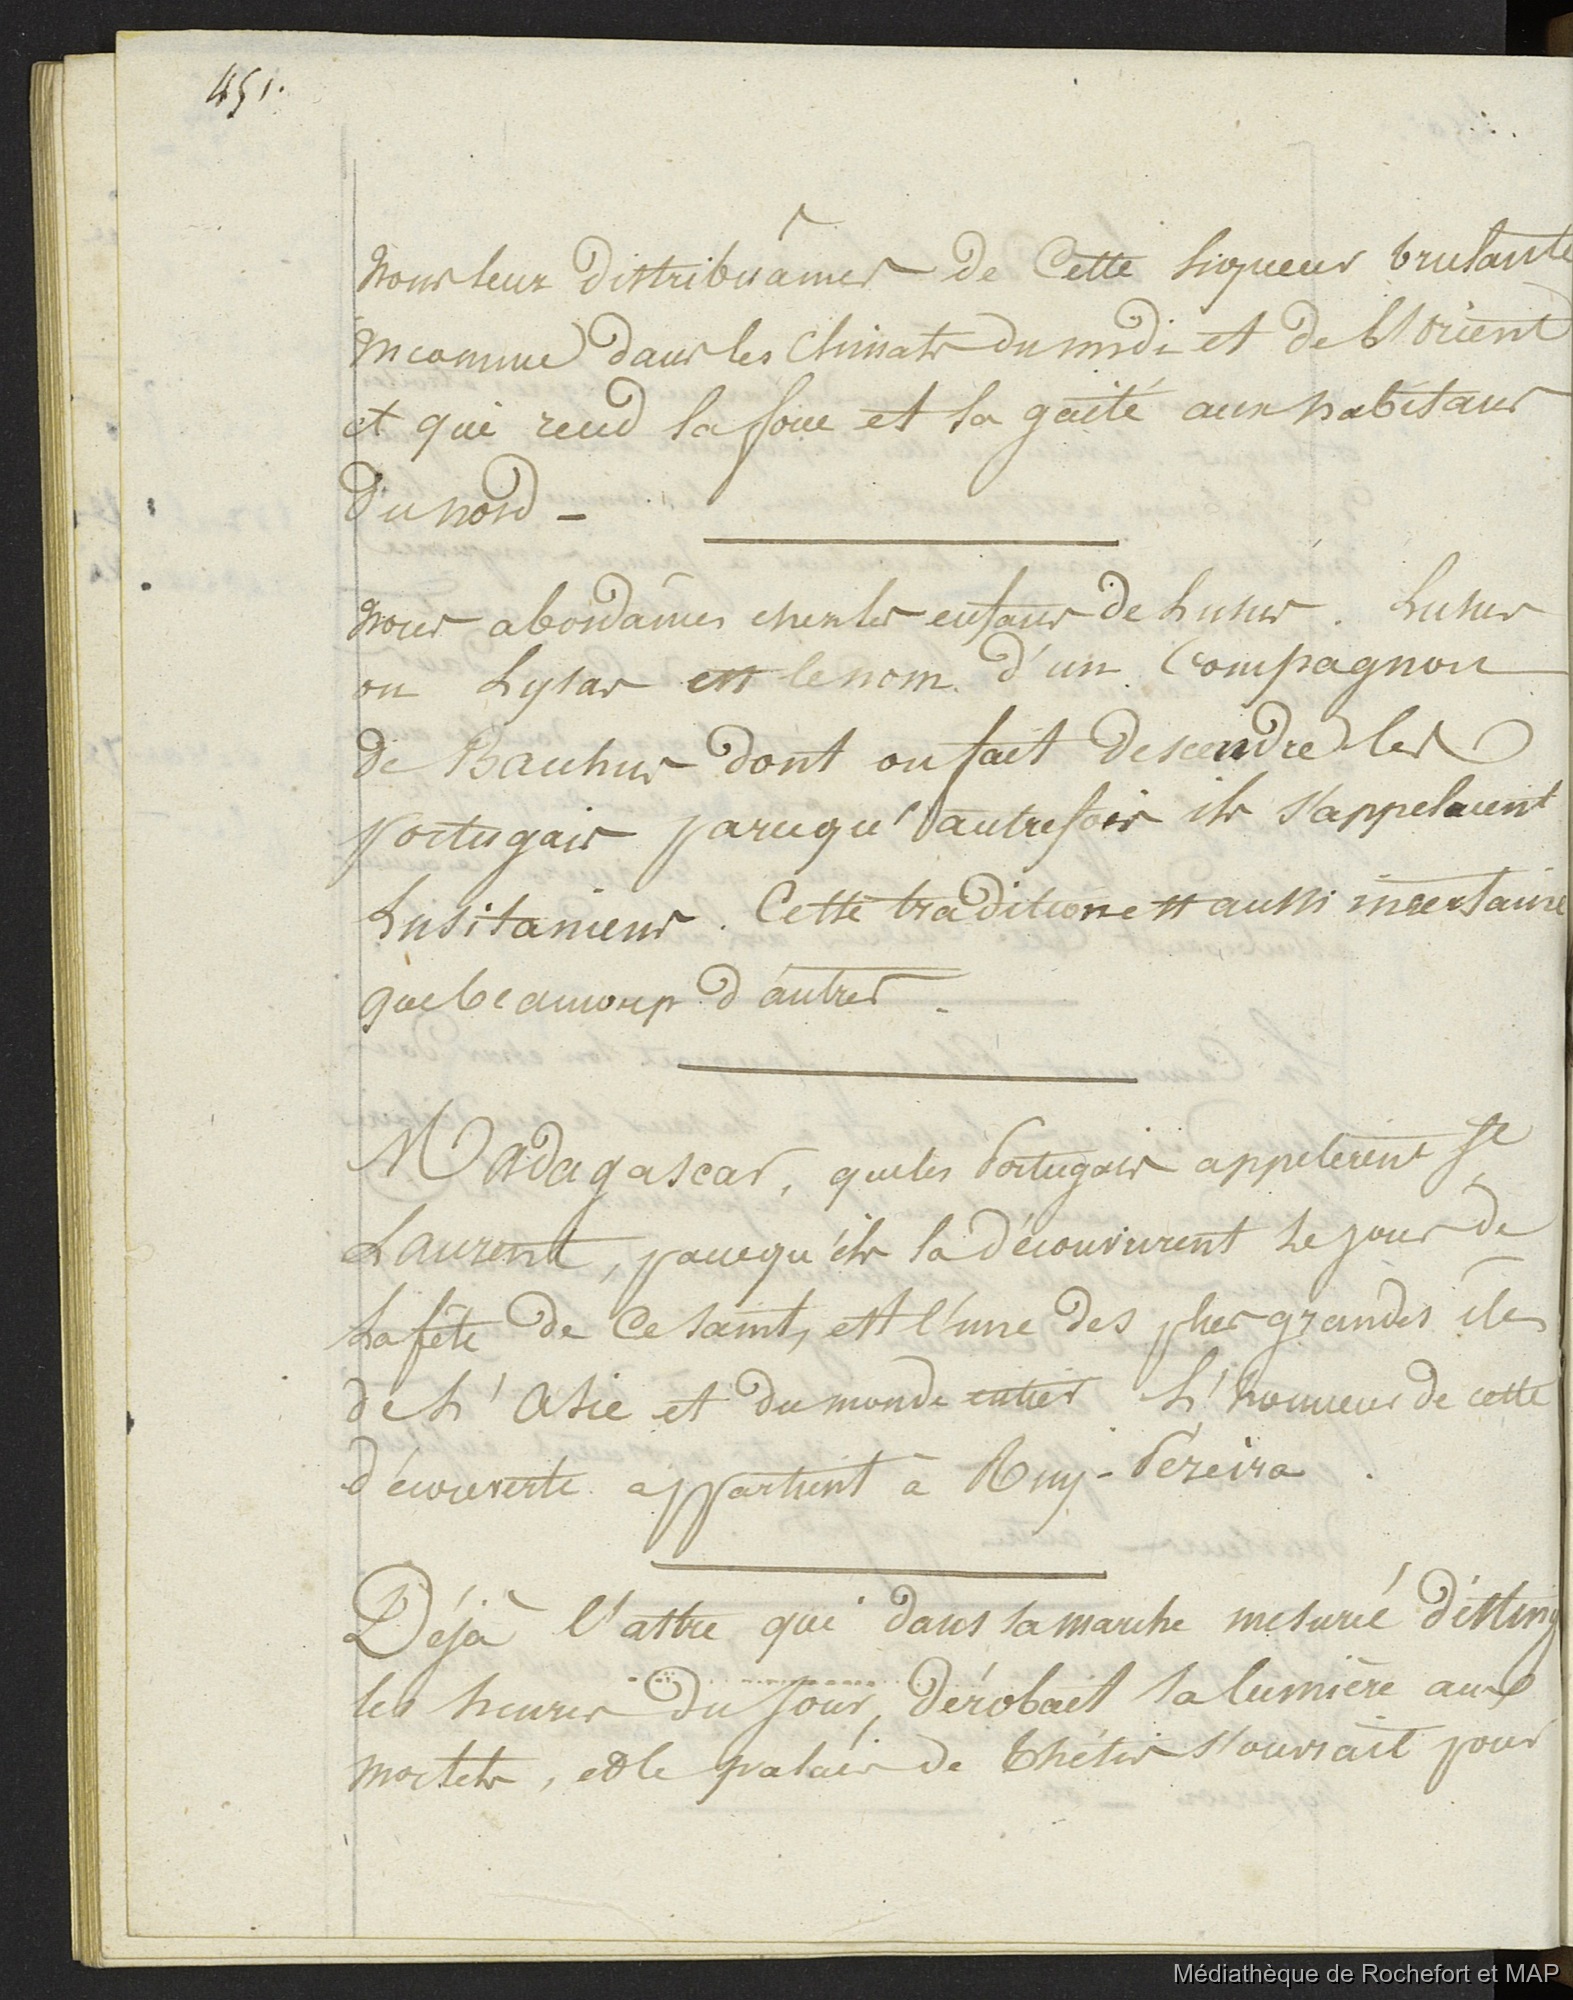 451.
nous leur distribuâmes de Cette liqueur brulante
inconnue dans les climats du midi et de l'orient
et qui rend la force et la gaité aux habitans
du nord -
nous abordâmes chez les enfans de Lusus. Lusus
ou Lysas est le nom d'un Compagnon
de Bacchus dont on fait descendre les
portugais parcequ'autrefois ils s'appelaient
Lusitaniens. Cette tradition est aussi incertaine
que beaucoup d'autres.
Madagascar, que les Portugais appelerent St
Laurent, parcequ'ils la découvrirent le jour de
la fête de ce saint, est l'une des plus grandes iles
de L'Asie et du monde entier L'honneur de cette
découverte appartient à Ruy-Péreira.
Déjà l'astre qui dans sa marche mesurée disting
les heures du jour, dérobait sa lumière aux
mortels, et le palais de Thétis s'ouvrait pour
Médiathèque de Rochefort et MAP